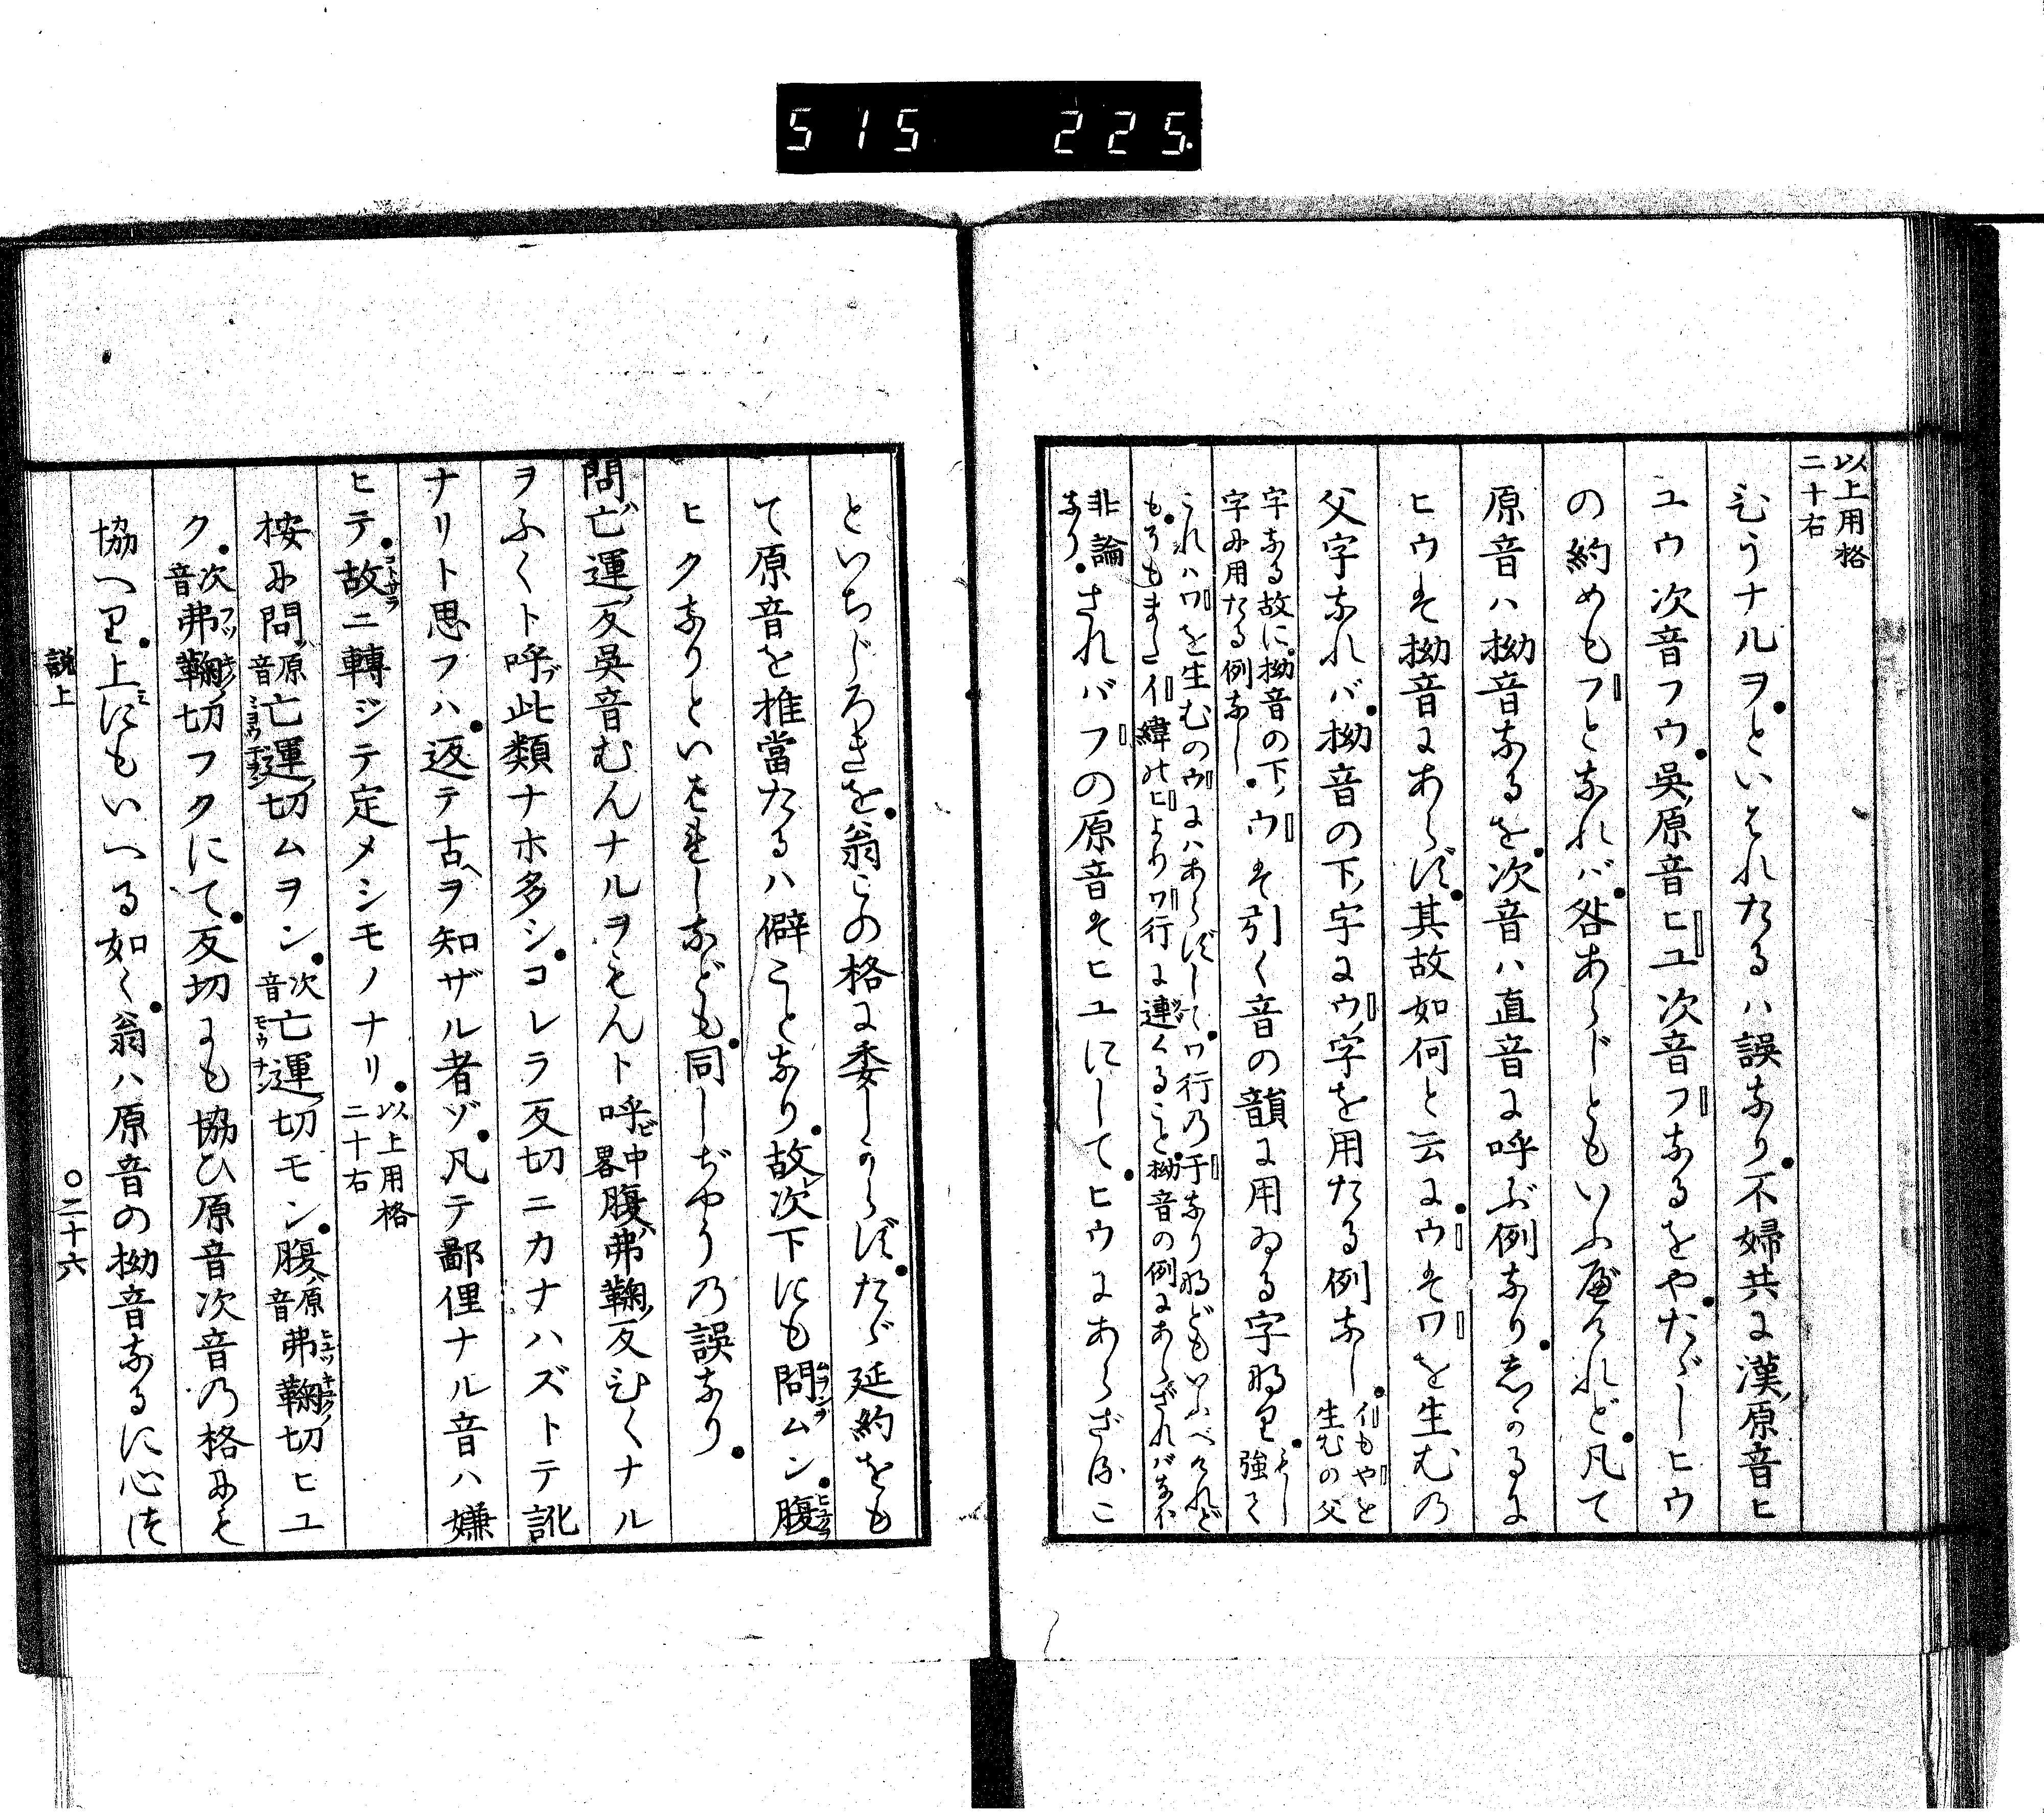 515 225.
以上用格
二十右
むうナルヲ。といはれたるハ誤なり。不婦共に漢ノ原音ヒ
ユウ次音フウ。呉ノ原音ヒユ次音フなるをや。たゞしヒウ
の約めもフとなれバ。咎あらじともいふべけれど。凡て
原音ハ拗音なるを。次音ハ直音に呼ぶ例なり。しかるに
ヒウは拗音にあらず。其故如何と云に。ウはワを生むの
父字なれバ。拗音の下ノ字にウ字を用たる例なし。イもやを
生むの父
字なる故に。拗音の下ノ
字に用たる例なし。ウは引く音の韻に用ゐる字なり。もし
強て
これハワを生むのウにハあらずして。ワ行の于なり抔ともいふべけれど
も。そもまたイ緯のヒよりワ行に連くること。拗音の例にあらざれバなほ
非論
なり。されバフの原音はヒユにして。ヒウにあらざるこ
といちじろきを。翁この格に委しからず。たゞ延約をも
て原音を推當たるハ僻ことなり。故レ次下にも問ムン。腹
ヒクなりといはれしなども。同しぢやうの誤なり。
問ハ亡運ノ反呉音むんナルヲもんト呼ビ中
畧腹ハ弗鞠ノ反ひくナル
ヲふくト呼ブ此類ナホ多シ。コレラ反切ニカナハズトテ訛
ナリト思フハ。返テ古ヘヲ知ザル者ゾ。凡テ鄙俚ナル音ハ嫌
ヒテ。故ニ轉ジテ定メシモノナリ。以上用格
二十右
按に問ハ原
音亡運ノ切ムヲン。次
音亡運ノ切モン。腹ハ原
音弗鞠ノ切ヒユ
ク。次
音弗鞠ノ切フクにて。反切にも協ひ原音次音の格にも
協へり。上ミにもいへる如く。翁ハ原音の拗音なるに心つ
説上
〇二十六